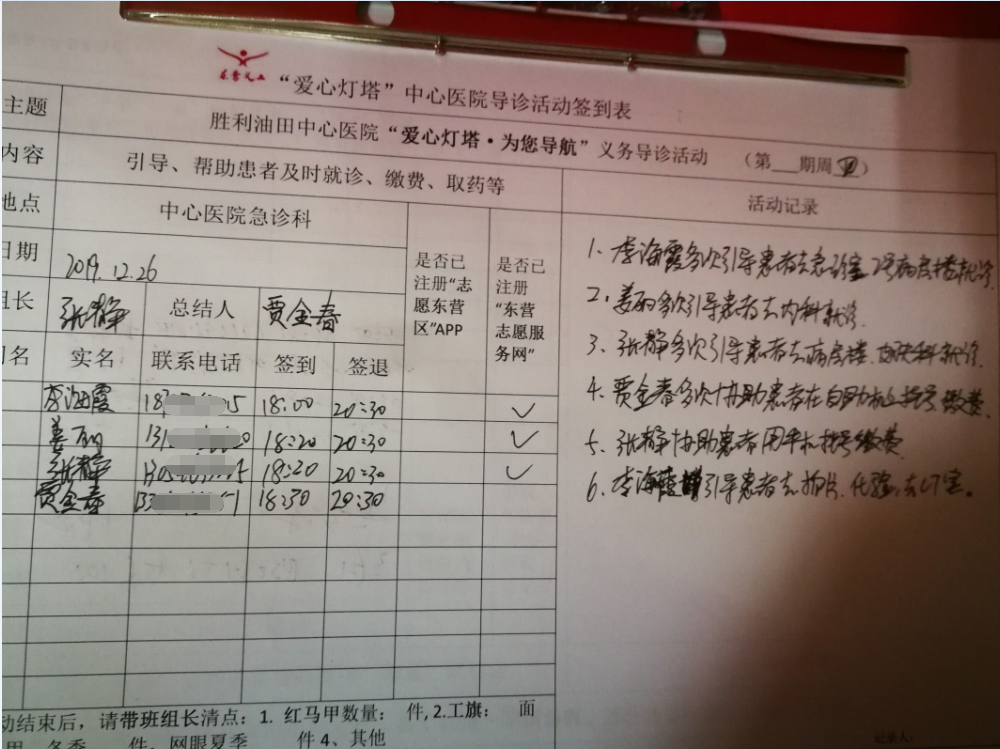 东营义工
“爱心灯塔”中心医院导诊活动签到表
主题 胜利油田中心医院“爱心灯塔·为您导航”义务导诊活动 （第___期周四）
内容 引导、帮助患者及时就诊、缴费、取药等
活动记录
地点 中心医院急诊科
日期 2019.12.26
是否已注册“志愿东营区”APP
是否已注册“东营志愿服务网”
组长 张静 总结人 贾金春
名 实名 联系电话 签到 签退
李海霞 18 5 18:00 20:30 ✓
姜丽 131 0 18:20 20:30 ✓
张静 130 5 18:20 20:30 ✓
贾金春 133 51 18:30 20:30
1、李海霞多次引导患者去急诊室、2号病房楼就诊.
2、姜丽多次引导患者去内科就诊.
3、张静多次引导患者去病房楼、科就诊.
4、贾金春多次协助患者在自助机上挂号缴费.
5、张静协助患者用手机挂号缴费
6、李海霞引导患者去拍片、化验、去CT室.
动结束后，请带班组长清点：1. 红马甲数量： 件, 2.工旗： 面
冬季 件、网眼夏季 件 4、其他
记录人：